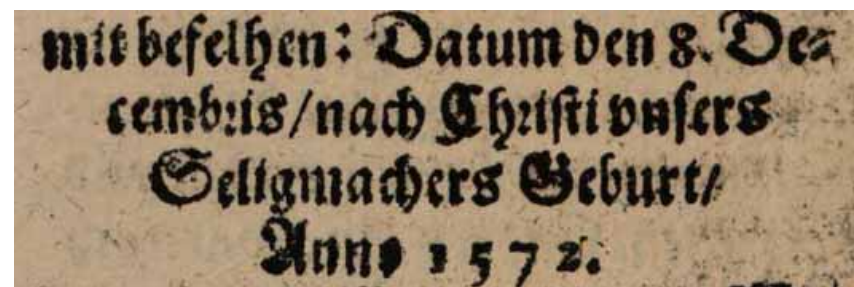 mit befelhen: Datum den 8. De-
cembris/nach Christi vnsers
Seligmachers Geburt/
Anno 1572.